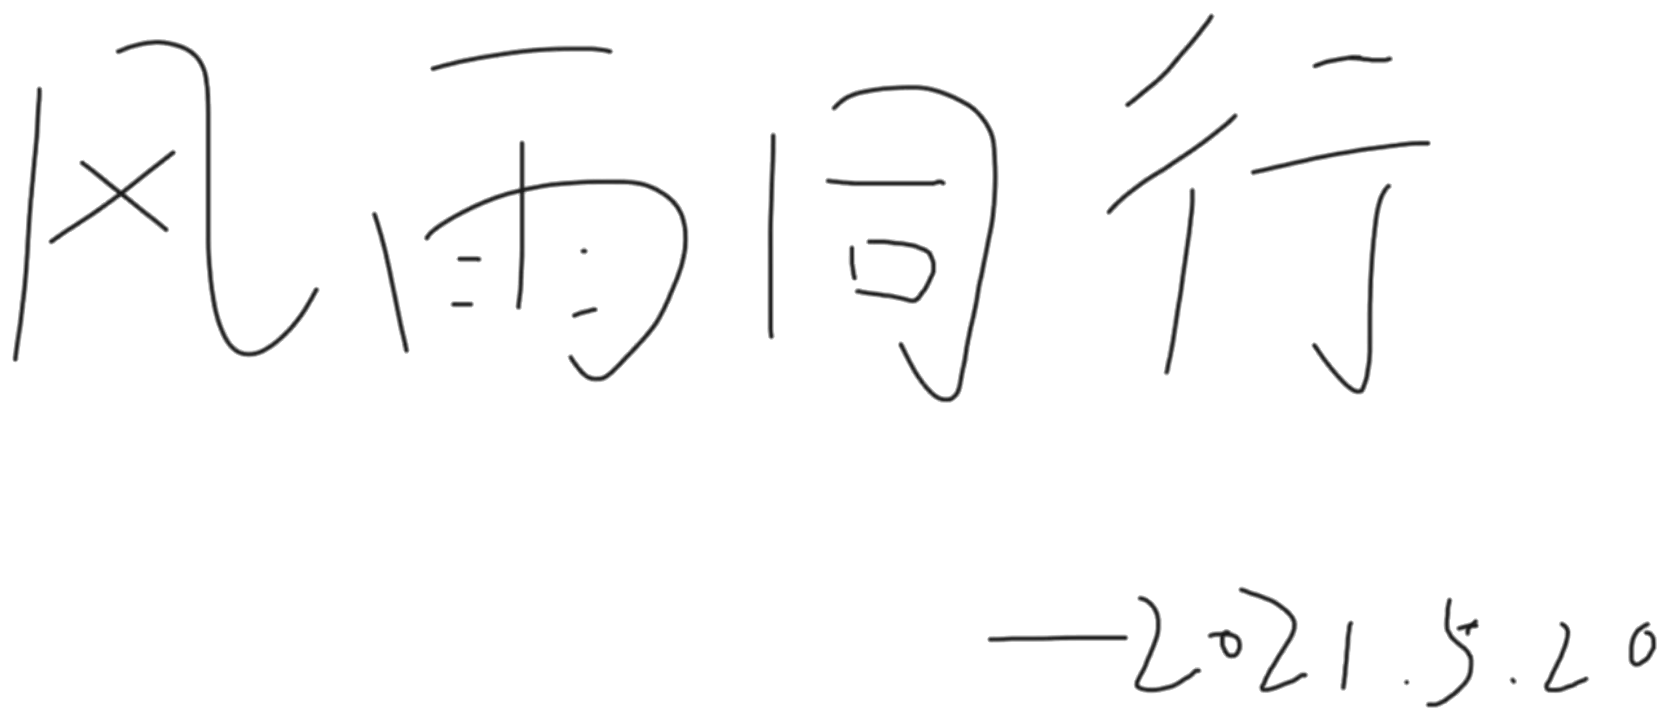 风雨同行
—2021.5.20